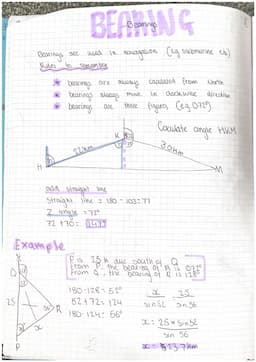 BEARING
Bearing
Bearings are used in navigation (eg submarine etc)
Rules to remember
bearings are always calculated from North
bearings always move in clockwise direction
bearings are three figures (eg 072°)
Calculate angle HKM
K
2.1km
3.0km
H
M
add straight line
straight line = 180 - 103 = 77
Z angle = 77°
72 + 70 =
Example
P is 25 k due south of Q
From P, the bearing of R is 072°
From Q, the bearing of R is 128°
Q
25
R
x
P
180 - 128 = 52°
52 + 72 = 124
180 - 124 = 56°
x
sin 52
25
sin 56
x = 25 × sin 52
sin 56
x = 23.7 km